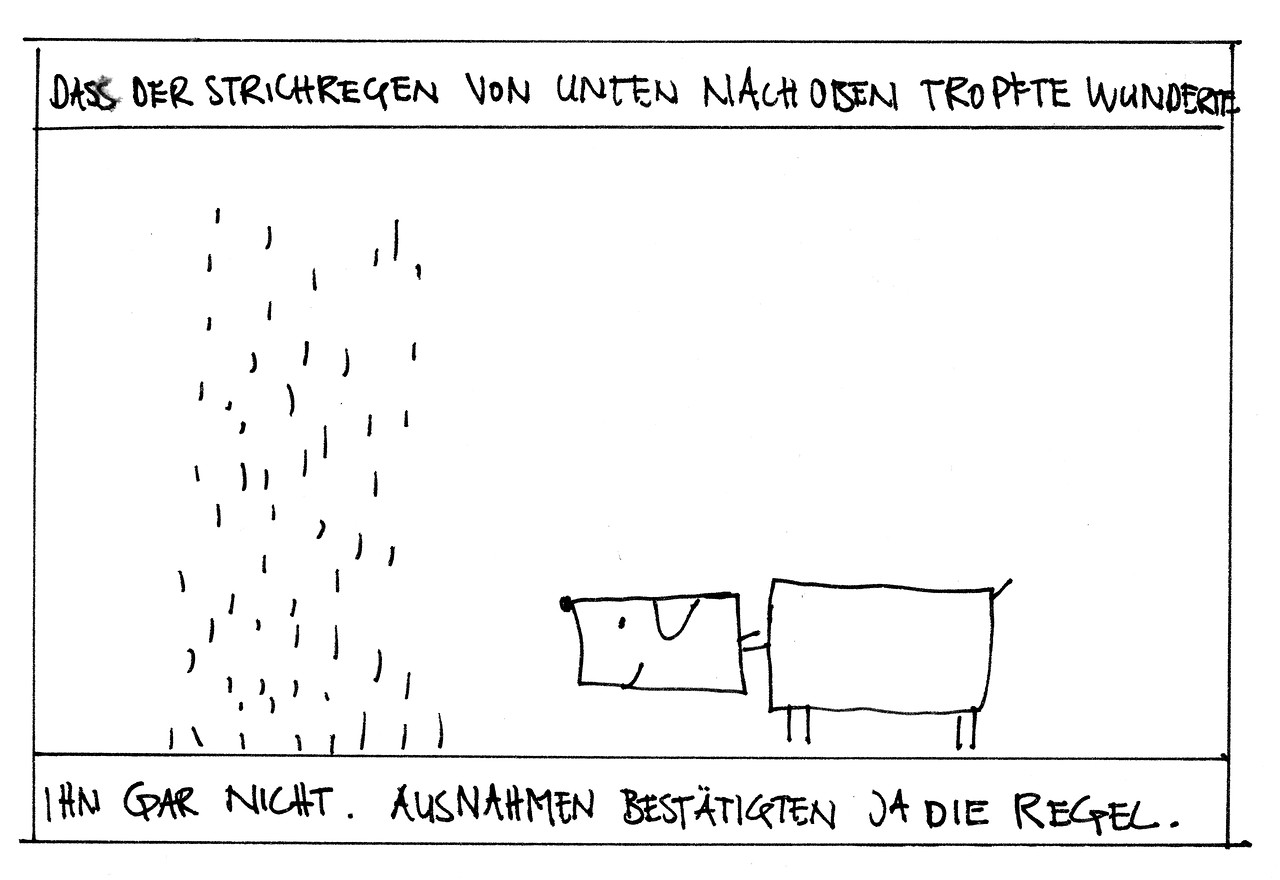 DASS DER STRICHREGEN VON UNTEN NACH OBEN TROPFTE WUNDERTE
IHN GAR NICHT. AUSNAHMEN BESTÄTIGTEN JA DIE REGEL.